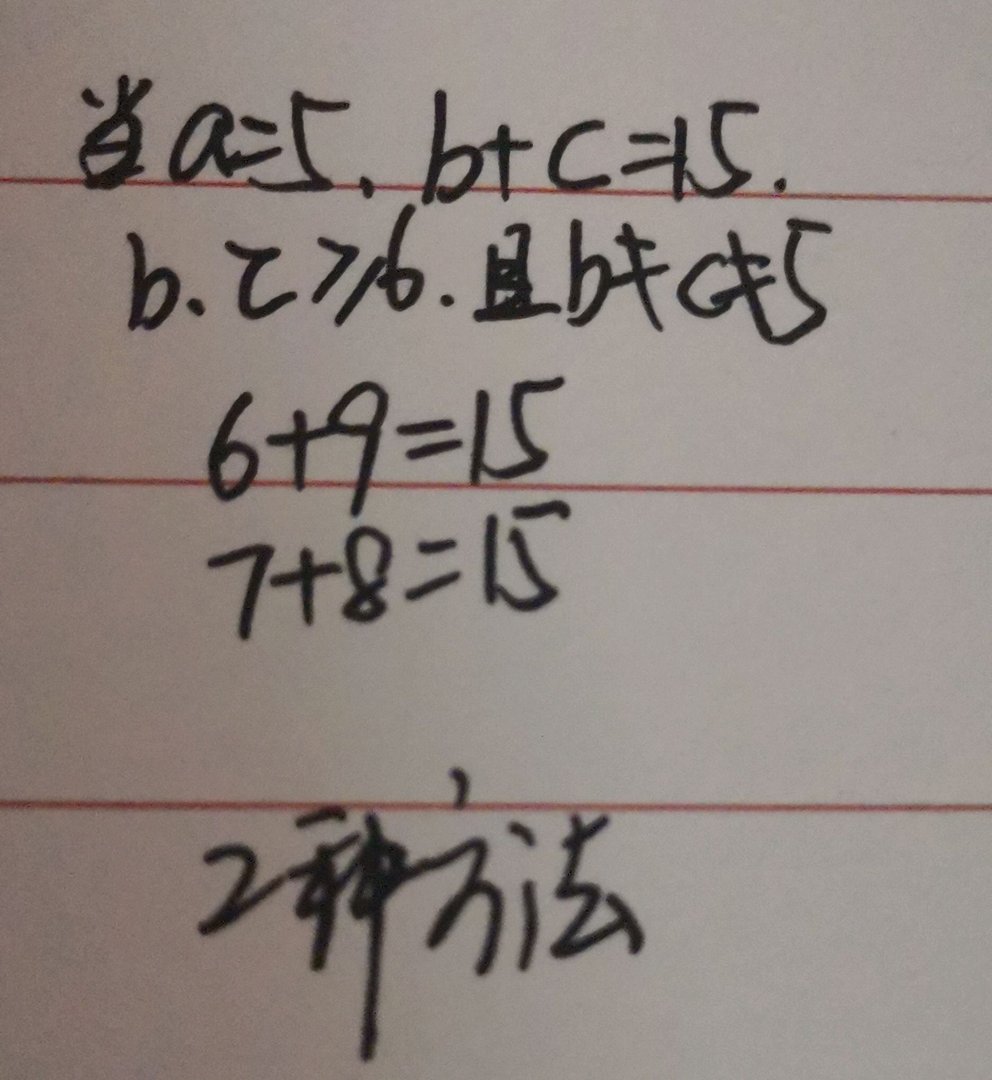 当a=5、b+c=15.
b、c≥6.且b≠c≠5
6+9=15
7+8=15
2种方法